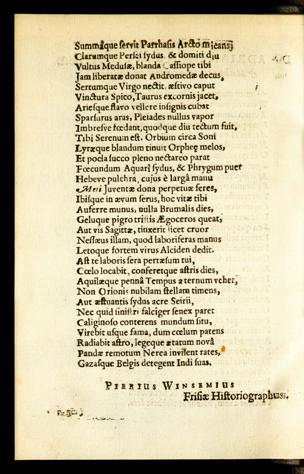 Summáque servit Parrhasis Arcto micans;
Clarumque Persei sydus, & domiti diu
Vultus Medusæ, blanda Cassiope tibi
Jam liberatæ donat Andromedæ decus,
Sertumque Virgo nectit. æstivo caput
Vinctura Spico, Taurus excornis jacet,
Ariesque flavo vellere insignis cubat
Sparsurus aras, Pleiades nullus vapor
Imbresve fœdant, quodque diu tectum fuit,
Tibi Serenum est. Orbium circa Soni
Lyræque blandum tinuit Orpheç melos,
Et pocla succo pleno nectareo parat
Fœcundum Aquarî sydus, & Phrygum puer
Hebeve pulchra, cujus è largâ manu
Meri Juventæ dona perpetuæ feres,
Ibisque in ævum ferus, hoc vitæ tibi
Auferre munus, nulla Brumalis dies,
Geluque pigro tristis Ægoceros queat,
Aut vis Sagittæ, tinxerit licet cruor
Nessæus illam, quod laboriferas manus
Letoque fortem virus Alciden dedit.
Ast te laboris fera pertæsum tui,
Cœlo locabit, conferetque astris dies,
Aquilæque pennâ Tempus æternum vehet,
Non Orionis nubilam stellam timens,
Aut æstuantis sydus acre Seirii,
Nec quid sinistri falciger senex paret
Caliginoso conterens mundum situ,
Virebit usque fama, dum cœlum patens
Radiabit astro, legeque ætatum novâ
Pandæ remotum Nerea invisent rates,
Gazasque Belgis detegent Indi suas.
PIERIUS WINSEMIUS
Frisiæ Historiographus.